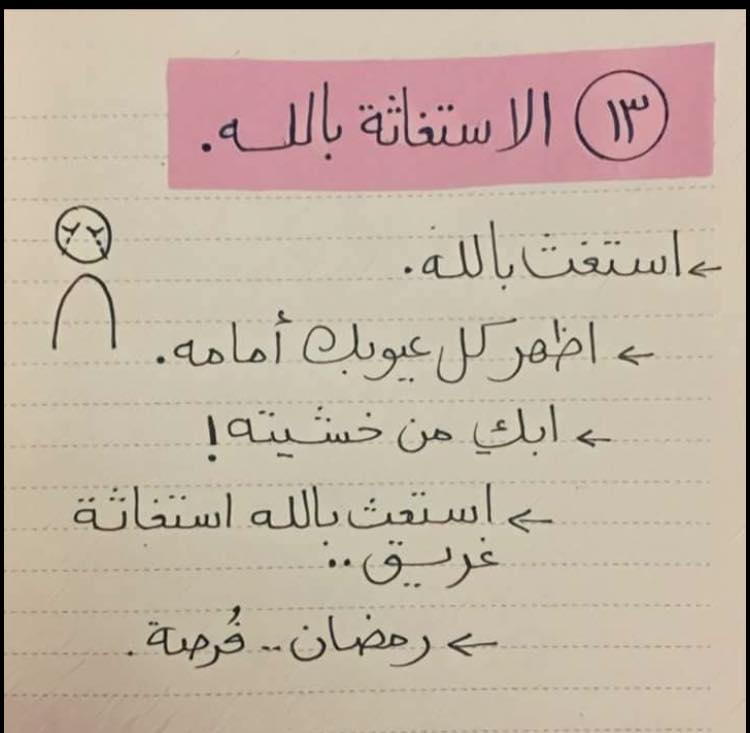 ١٣ الاستغاثة بالله.
← استغث بالله.
← اظهر كل عيوبك أمامه.
← ابكي من خشيته!
← استغث بالله استغاثة
غريق..
← رمضان.. فُرصة.